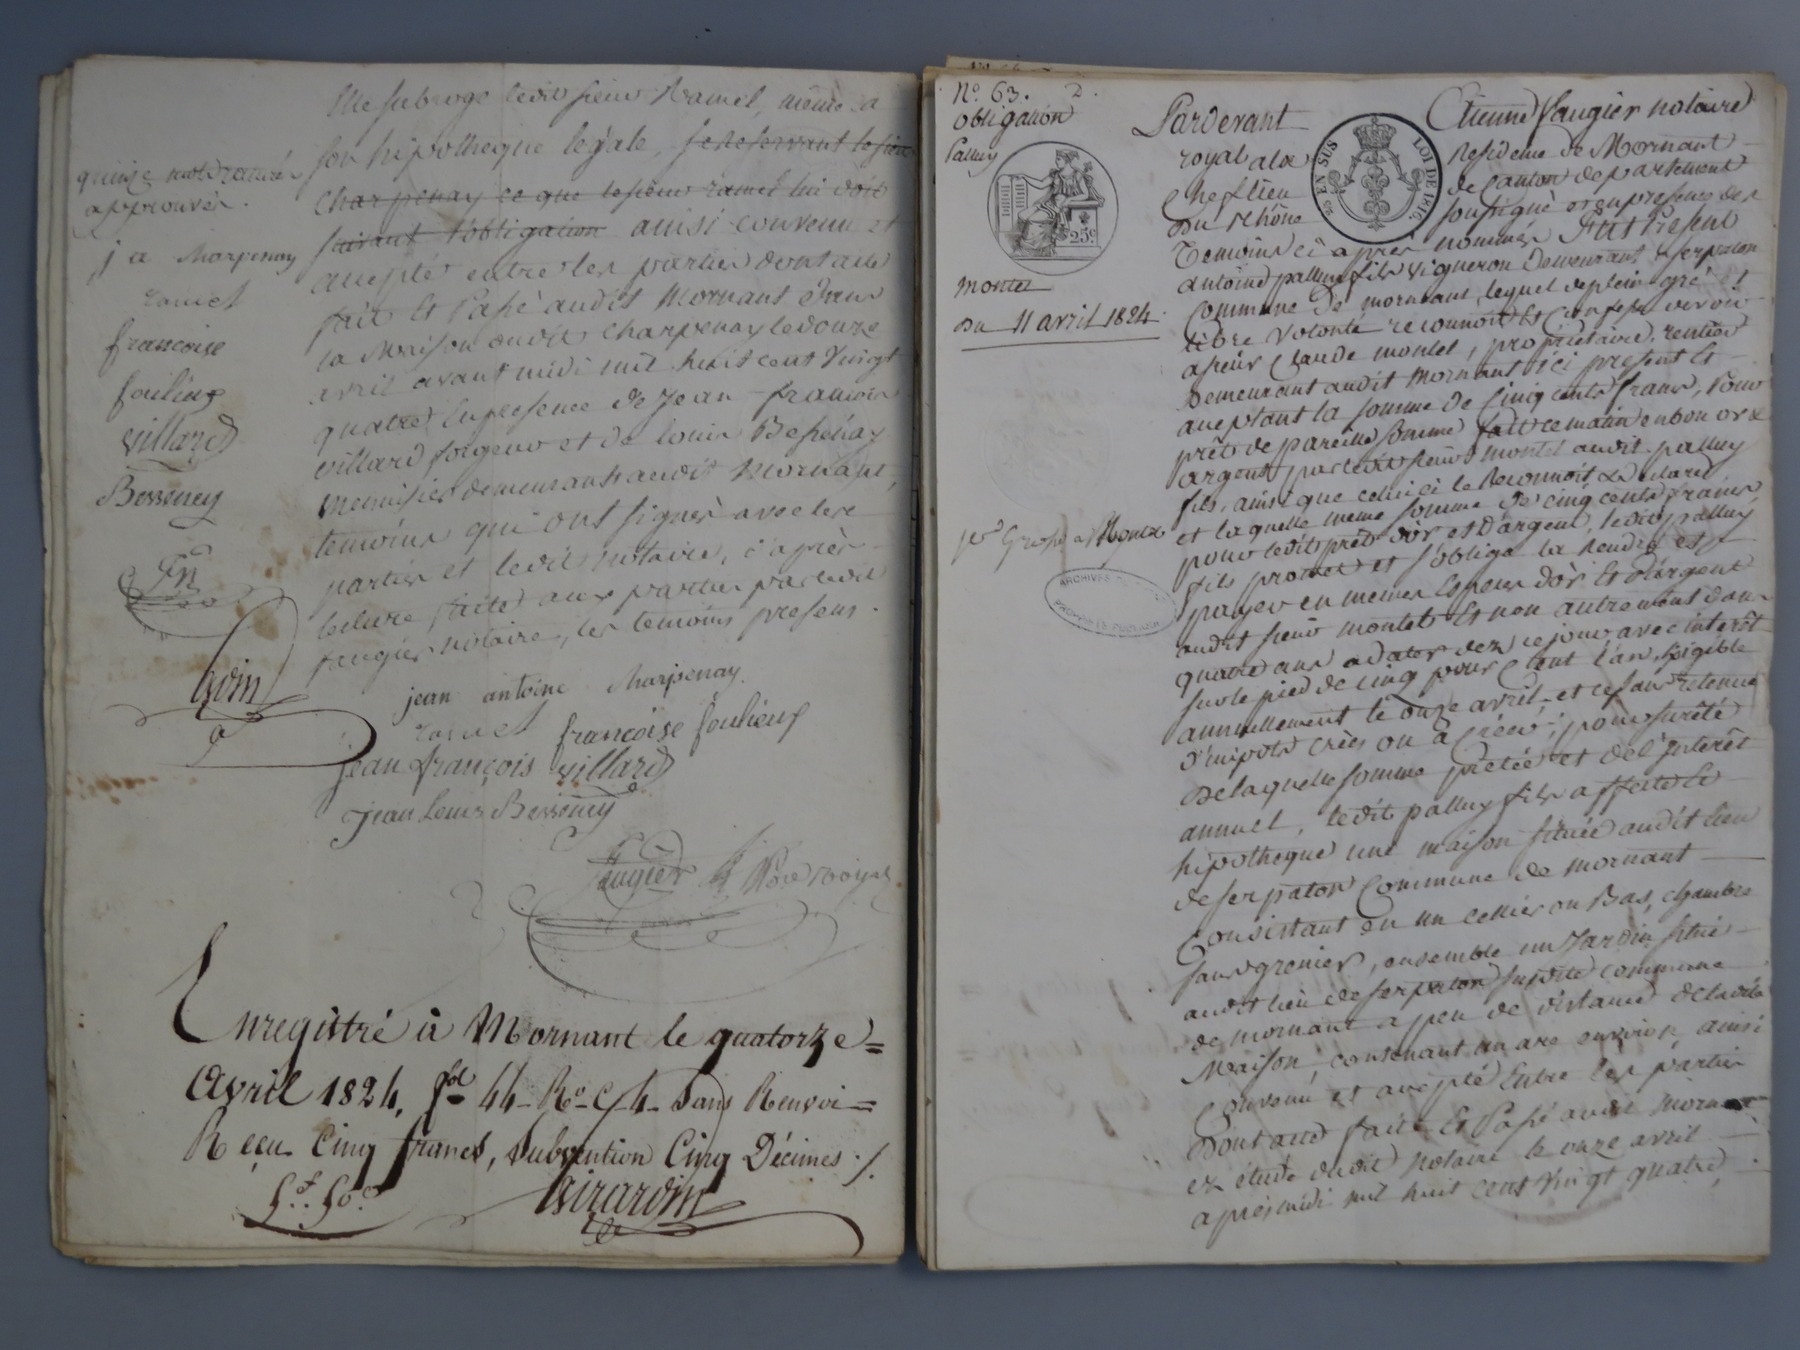 Elle subroge ledit sieur Ramel, même a
son hipotheque legale, se reservant le sieur
Charpenay ce que le sieur ramel lui doit
suivant l'obligation ainsi convenu et
accepté entre les parties dont acte
fait et Passé audit Mornant dans
la Maison dudit Charpenay le douze
avril avant midi mil huit cent vingt
quatre En presence de Jean-françois
villard forgeur et de louis Bessenay
menuisier demeurants audit Mornant,
temoins qui ont signés avec les
parties et ledit notaire, d'après
lecture faite aux parties par ledit
faugier notaire, les temoins presens.
quinze mots raturés
approuvés.
j a Charpenay
ramel
francoise
foulieux
villard
Bessenay
jean antoine Charpenay.
ramel francoise foulieux
jean françois villard
jean Louis Bessenay
faugier Nore royal
Enregistré à Mornant le quatorze
Avril 1824, fol 44 Ro C 4 Sans Renvoi
Reçu Cinq francs, subvention Cinq Décimes ./.
5f. 50c
Girardin
No. 63. 2.
obligation
Palluy
25c
montel
du 11 avril 1824.
EN SUS
LOI DE 1816.
ARCHIVES
Pardevant Etienne faugier notaire
royal a la Residence de Mornant
Chef lieu de Canton departement
du Rhône soussigné et en presence des
Temoins ci après nommés Fut Present
antoine palluy fils vigneron Demeurant a serpaton
Commune de mornant, lequel de plein gré &
libre volonté reconnoit et Confesse devoir
a sieur Claude montel, propriétaire, rentier
demeurant audit Mornant ici present et
acceptant la somme de Cinq cents francs, Pour
prêt de pareille somme fait ce matin en bon or &
argent par ledit sieur montel audit palluy
fils, ainsi que celui ci le Reconnoit & declare
et laquelle meme somme de cinq cents francs
pour ledit prêt d'or et d'argent, ledit palluy
fils promet et s'oblige la Rendre et
payer en memes Especes d'or Et d'argent
audit sieur montel Et non autrement dans
quatre ans a dater de ce jour avec interêt
sur le pied de cinq pour Cent l'an, Exigible
annuellement le onze avril et ce sans retenue
d'impots créés ou a créer; pour sureté
de laquelle somme prêtée et de l'Interêt
annuel, ledit palluy fils affecte Et
hipotheque une maison située audit lieu
de serpaton Commune de mornant
Consistant en un cellier au Bas, chambre
sans grenier, ensemble un Jardin situé
audit lieu de serpaton susdite commune
de mornant a peu de distance de ladite
Maison, contenant un are environ, ainsi
Convenu et accepté Entre les parties
Dont acte fait Et Passé audit mornant
en étude dudit Notaire le onze avril
après midi mil huit cent vingt quatre,